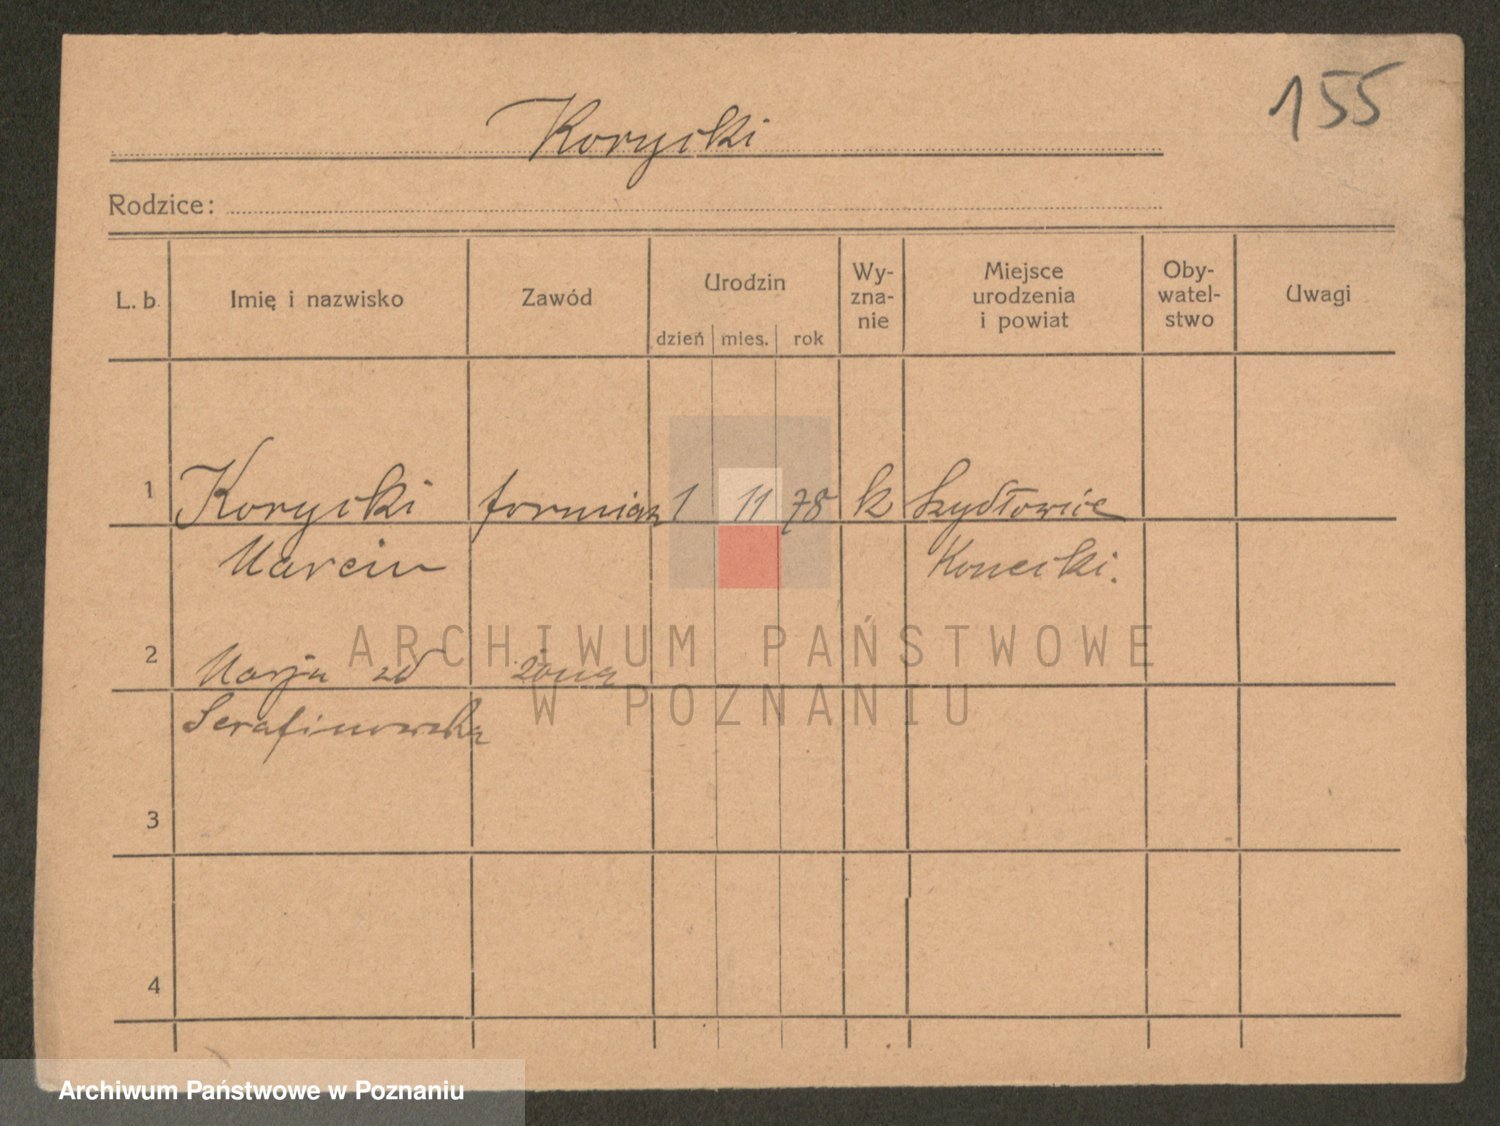 155
Korycki
Rodzice:
L. b. Imię i nazwisko Zawód Urodzin Wy-zna-nie Miejsce urodzenia i powiat Oby-watel-stwo Uwagi
dzień mies. rok
1 Korycki forniarz 1 11 78 k Szydłowiec
Marcin Konecki.
2 Marja zd żona
Serafinowska
3
4
ARCHIWUM PAŃSTWOWE
W POZNANIU
Archiwum Państwowe w Poznaniu